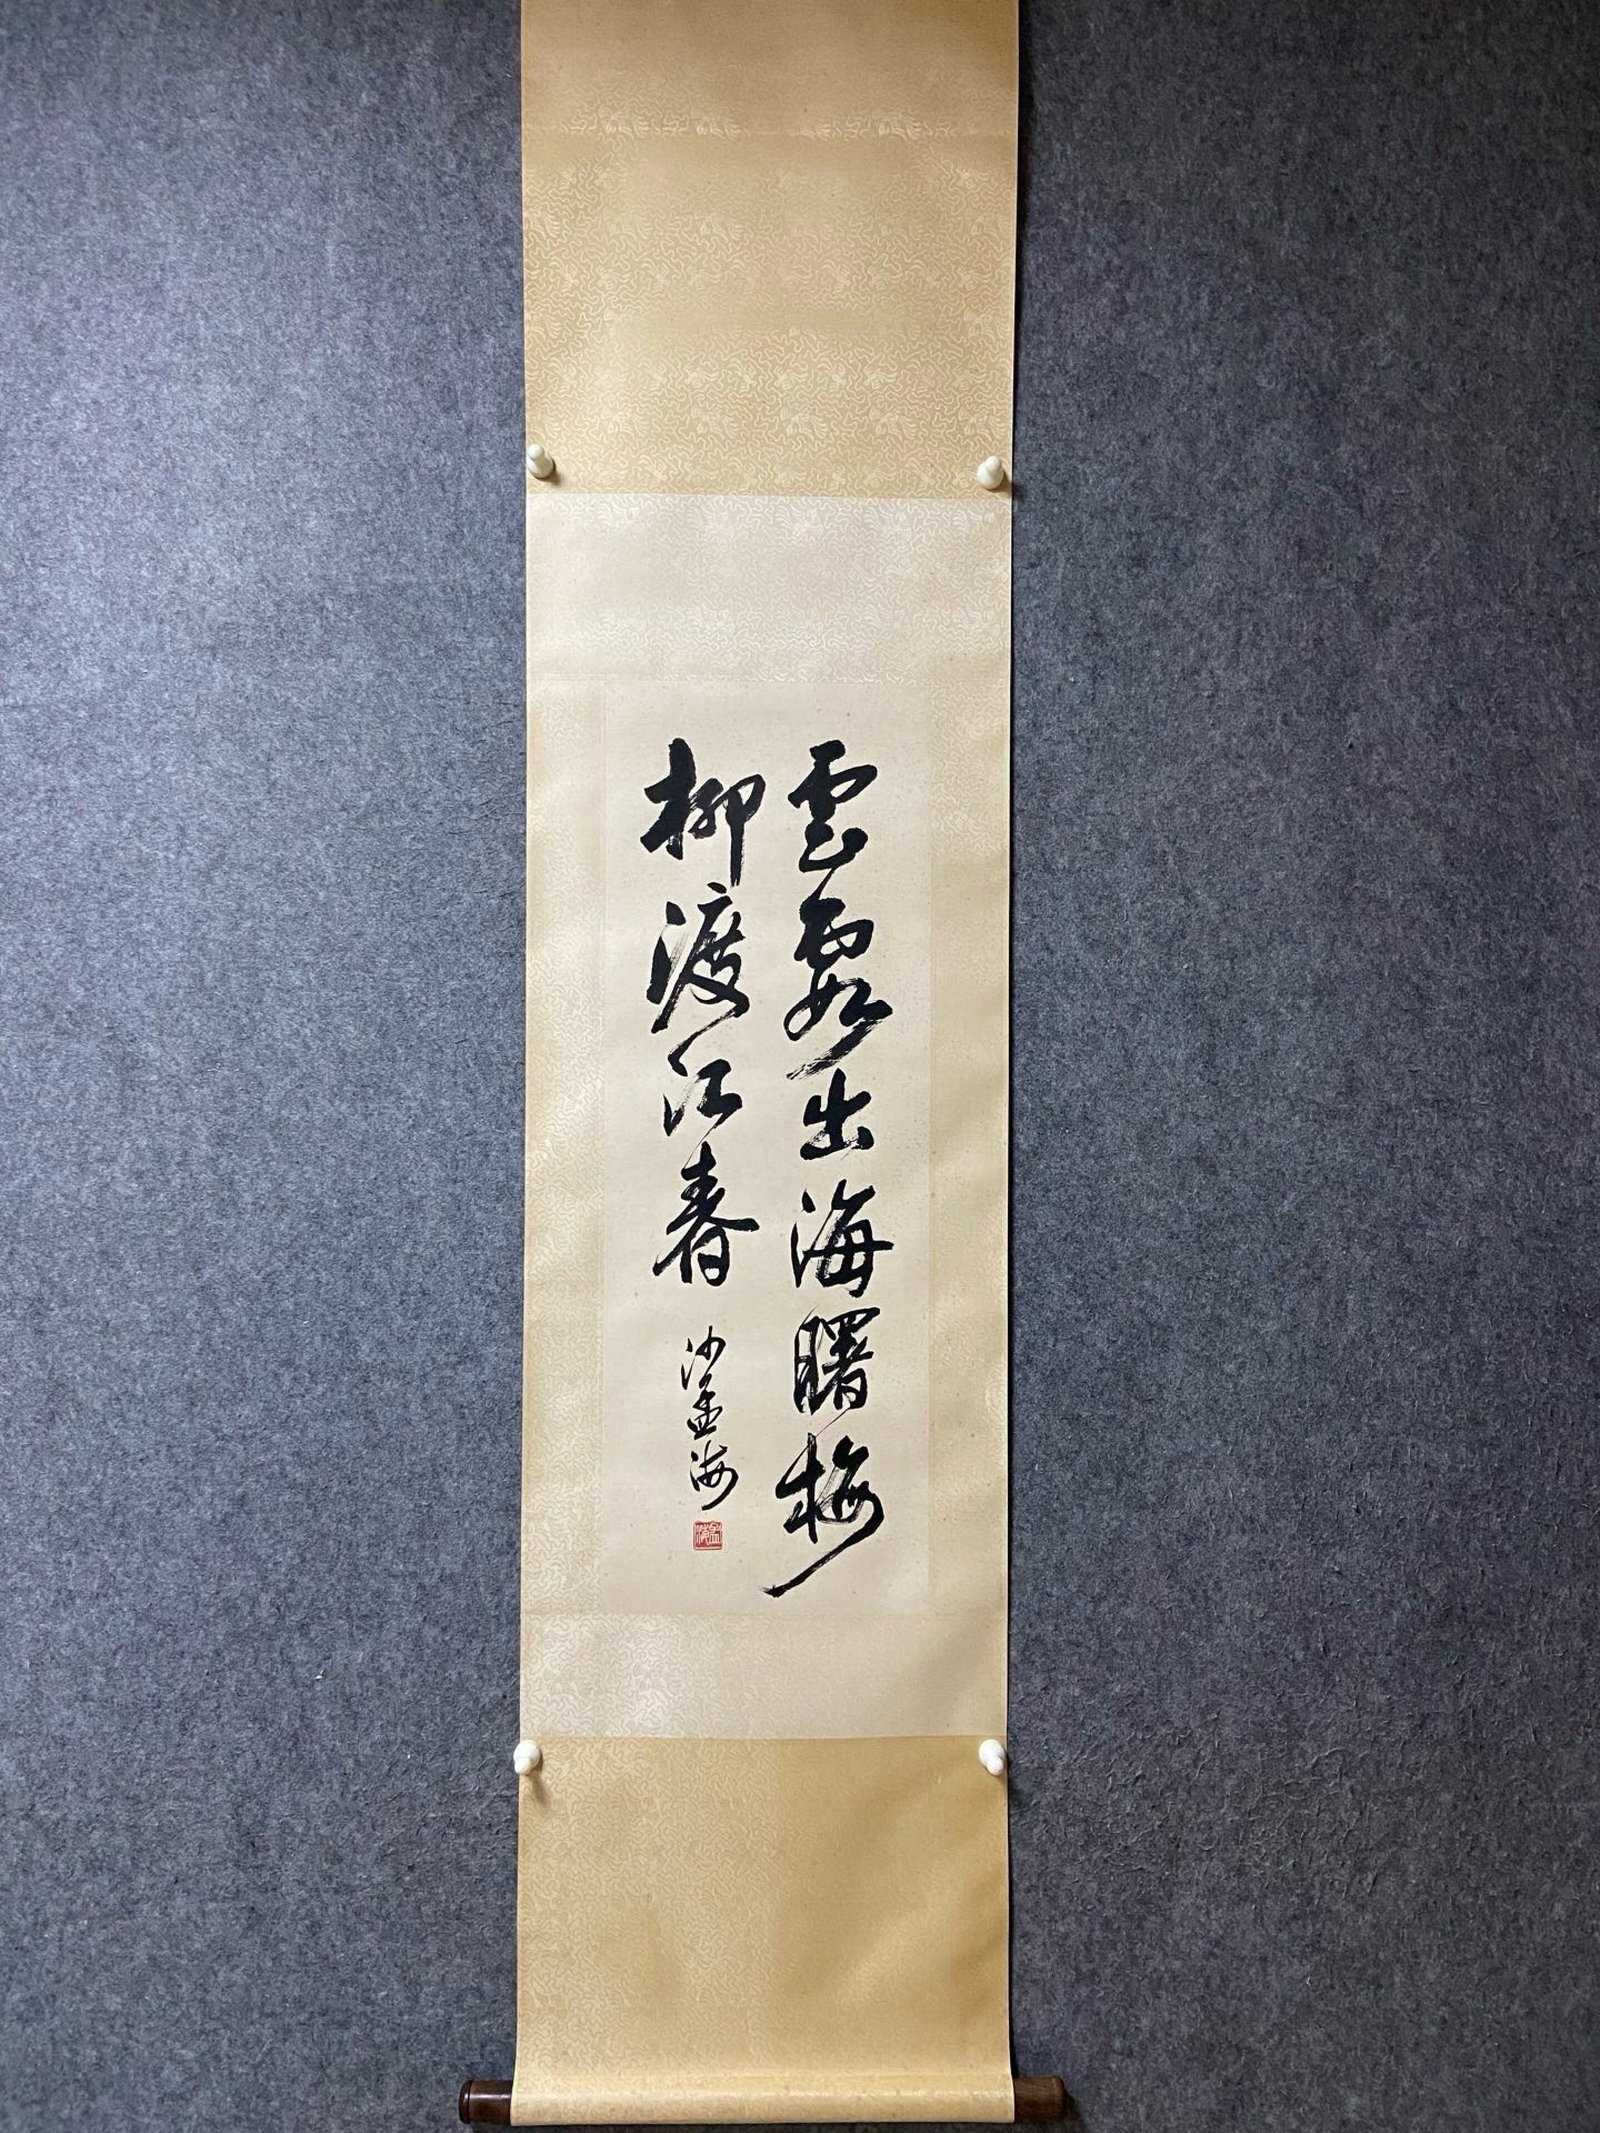 雲霞出海曙梅
柳渡江春
沙孟海
孟海